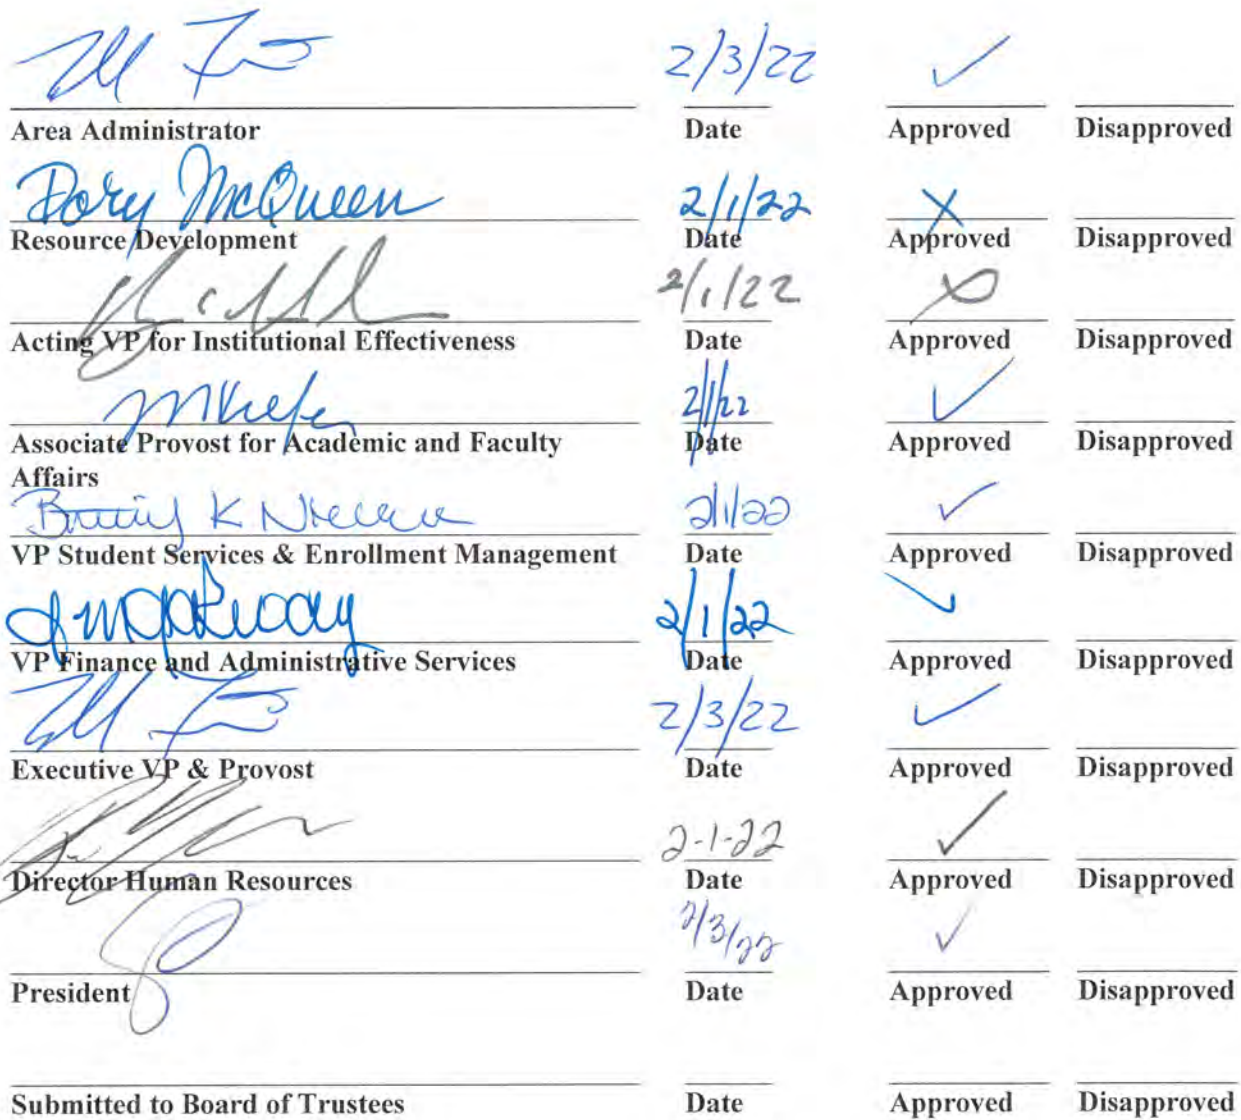 2/3/22 ✓
Area Administrator Date Approved Disapproved
Dory McQueen 2/1/22 X
Resource Development Date Approved Disapproved
2/1/22 X
Acting VP for Institutional Effectiveness Date Approved Disapproved
2/1/22 ✓
Associate Provost for Academic and Faculty Date Approved Disapproved
Affairs
K 2/1/22 ✓
VP Student Services & Enrollment Management Date Approved Disapproved
2/1/22 ✓
VP Finance and Administrative Services Date Approved Disapproved
2/3/22 ✓
Executive VP & Provost Date Approved Disapproved
2-1-22 ✓
Director Human Resources Date Approved Disapproved
2/3/22 ✓
President Date Approved Disapproved
Submitted to Board of Trustees Date Approved Disapproved